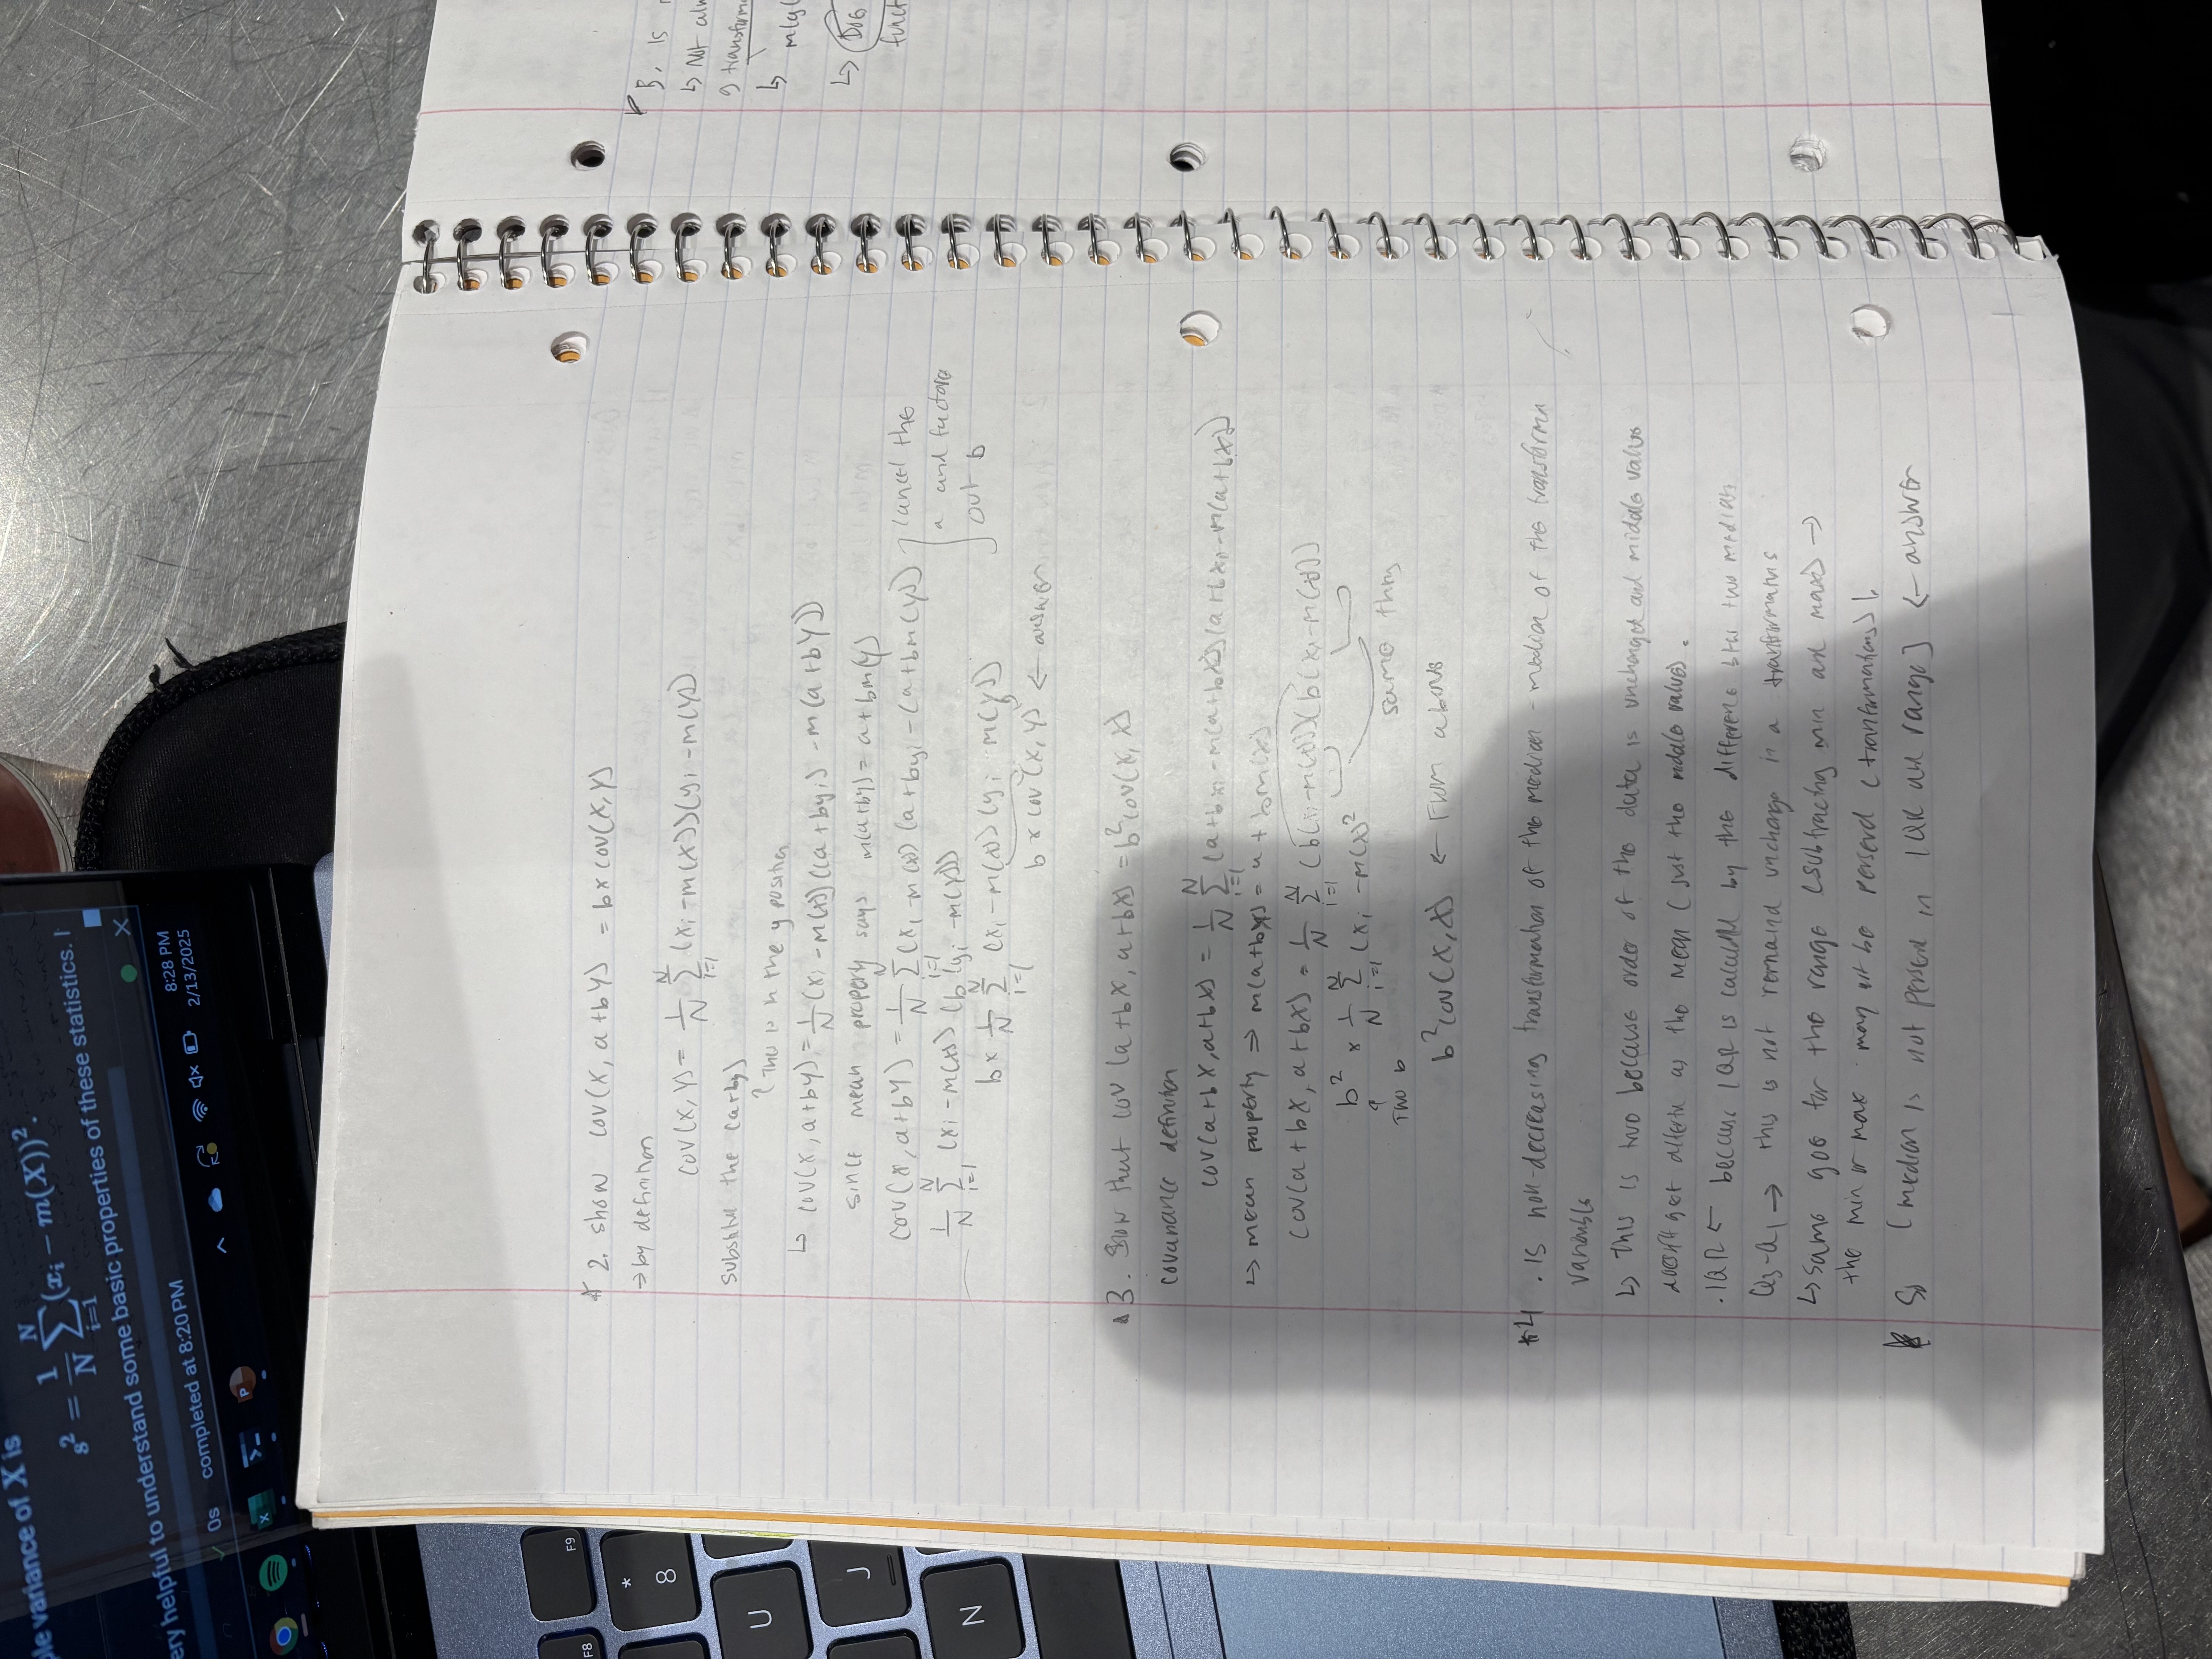 ple variance of X is
s² = 1/N Σ_{i=1}^{N} (x_i − m(X))².
ery helpful to understand some basic properties of these statistics. I
✓ 0s completed at 8:20 PM
8:28 PM
2/13/2025
F8
F9
*
8
U
J
N
* 2. show cov(X, a+bY) = b×cov(X,Y)
→ by definition
cov(X,Y) = 1/N Σ_{i=1}^{N} (x_i − m(X))(y_i − m(Y))
the (a+by)
in the y position
↳ cov(X, a+bY) = 1/N (x_i − m(x)) ((a+by_i) − m(a+bY))
since mean property says m(a+by) = a+bm(y)
cov(x, a+bY) = 1/N Σ_{i=1}^{N} (x_i − m(x)) (a+by_i − (a+bm(Y))
cancel the
a and factors
out b
1/N Σ_{i=1}^{N} (x_i − m(x)) (b(y_i − m(Y)))
b× 1/N Σ_{i=1}^{N} (x_i − m(x)) (y_i m(y))
b × cov(X,Y) ← answer
3. Show that cov(a+bX, a+bX) = b² cov(X,X)
covariance definition
cov(a+bX, a+bX) = 1/N Σ_{i=1}^{N} (a+bx_i − m(a+bX))(a+bx_i − m(a+bX))
↳ mean property ⇒ m(a+bX) = a + bm(x)
cov(a+bX, a+bX) = 1/N Σ_{i=1}^{N} (b(x_i − m(x)))(b(x_i − m(x)))
b² × 1/N Σ_{i=1}^{N} (x_i − m(x)²
Two b
same
b² cov(X,X) ← From above
*4. Is non-decreasing transformation of the median - median of the
↳ This is because order of the data is and middle value
get as the mean (just the middle value).
.IQR ← because IQR is by the difference two
Q3-Q1 → this is not in a
↳ same for the range (subtracting min and max) →
the min or max may be
So [median is not in IQR range] ← answer
is
↳ Not
m(g(
↳
funct